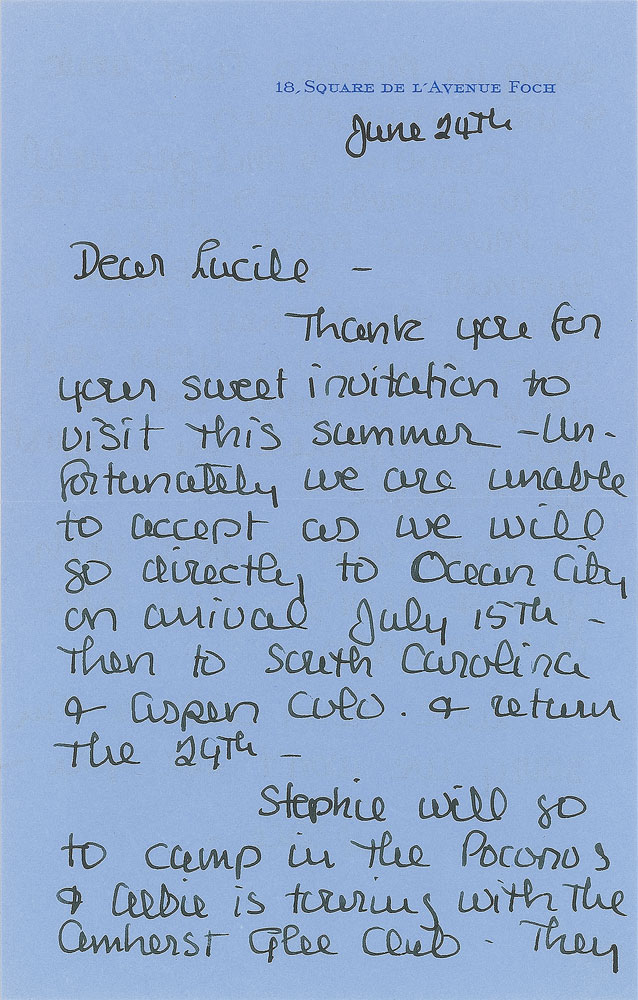 18, SQUARE DE L'AVENUE FOCH
June 24th
Dear Lucile –
Thank you for
your sweet invitation to
visit this summer – Un-
fortunately we are unable
to accept as we will
go directly to Ocean City
on arrival July 15th –
then to South Carolina
& Aspen Colo. & return
the 29th –
Stephie will go
to camp in the Poconos
& Albie is touring with the
Amherst Glee Club - They